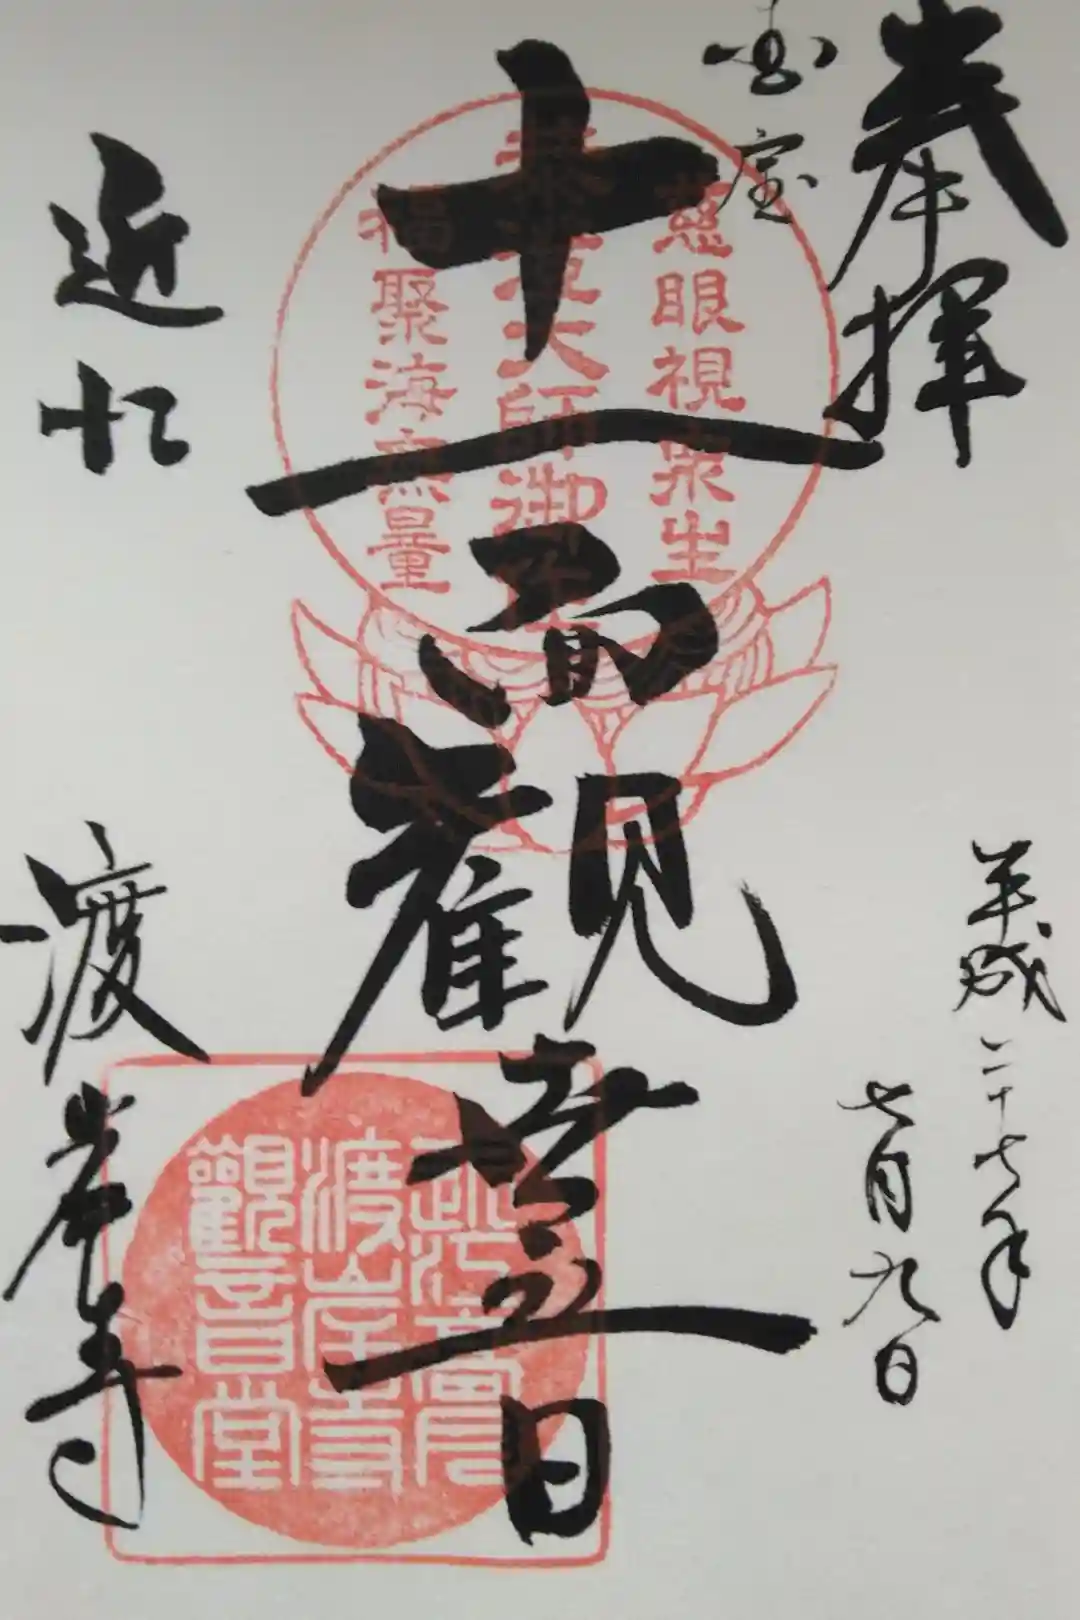 奉拝
国宝
平成二十七年
七月九日
十一面観世音
慈眼視衆生
泰澄大師御作
福聚海無量
近江
渡岸寺
渡岸寺
観音堂